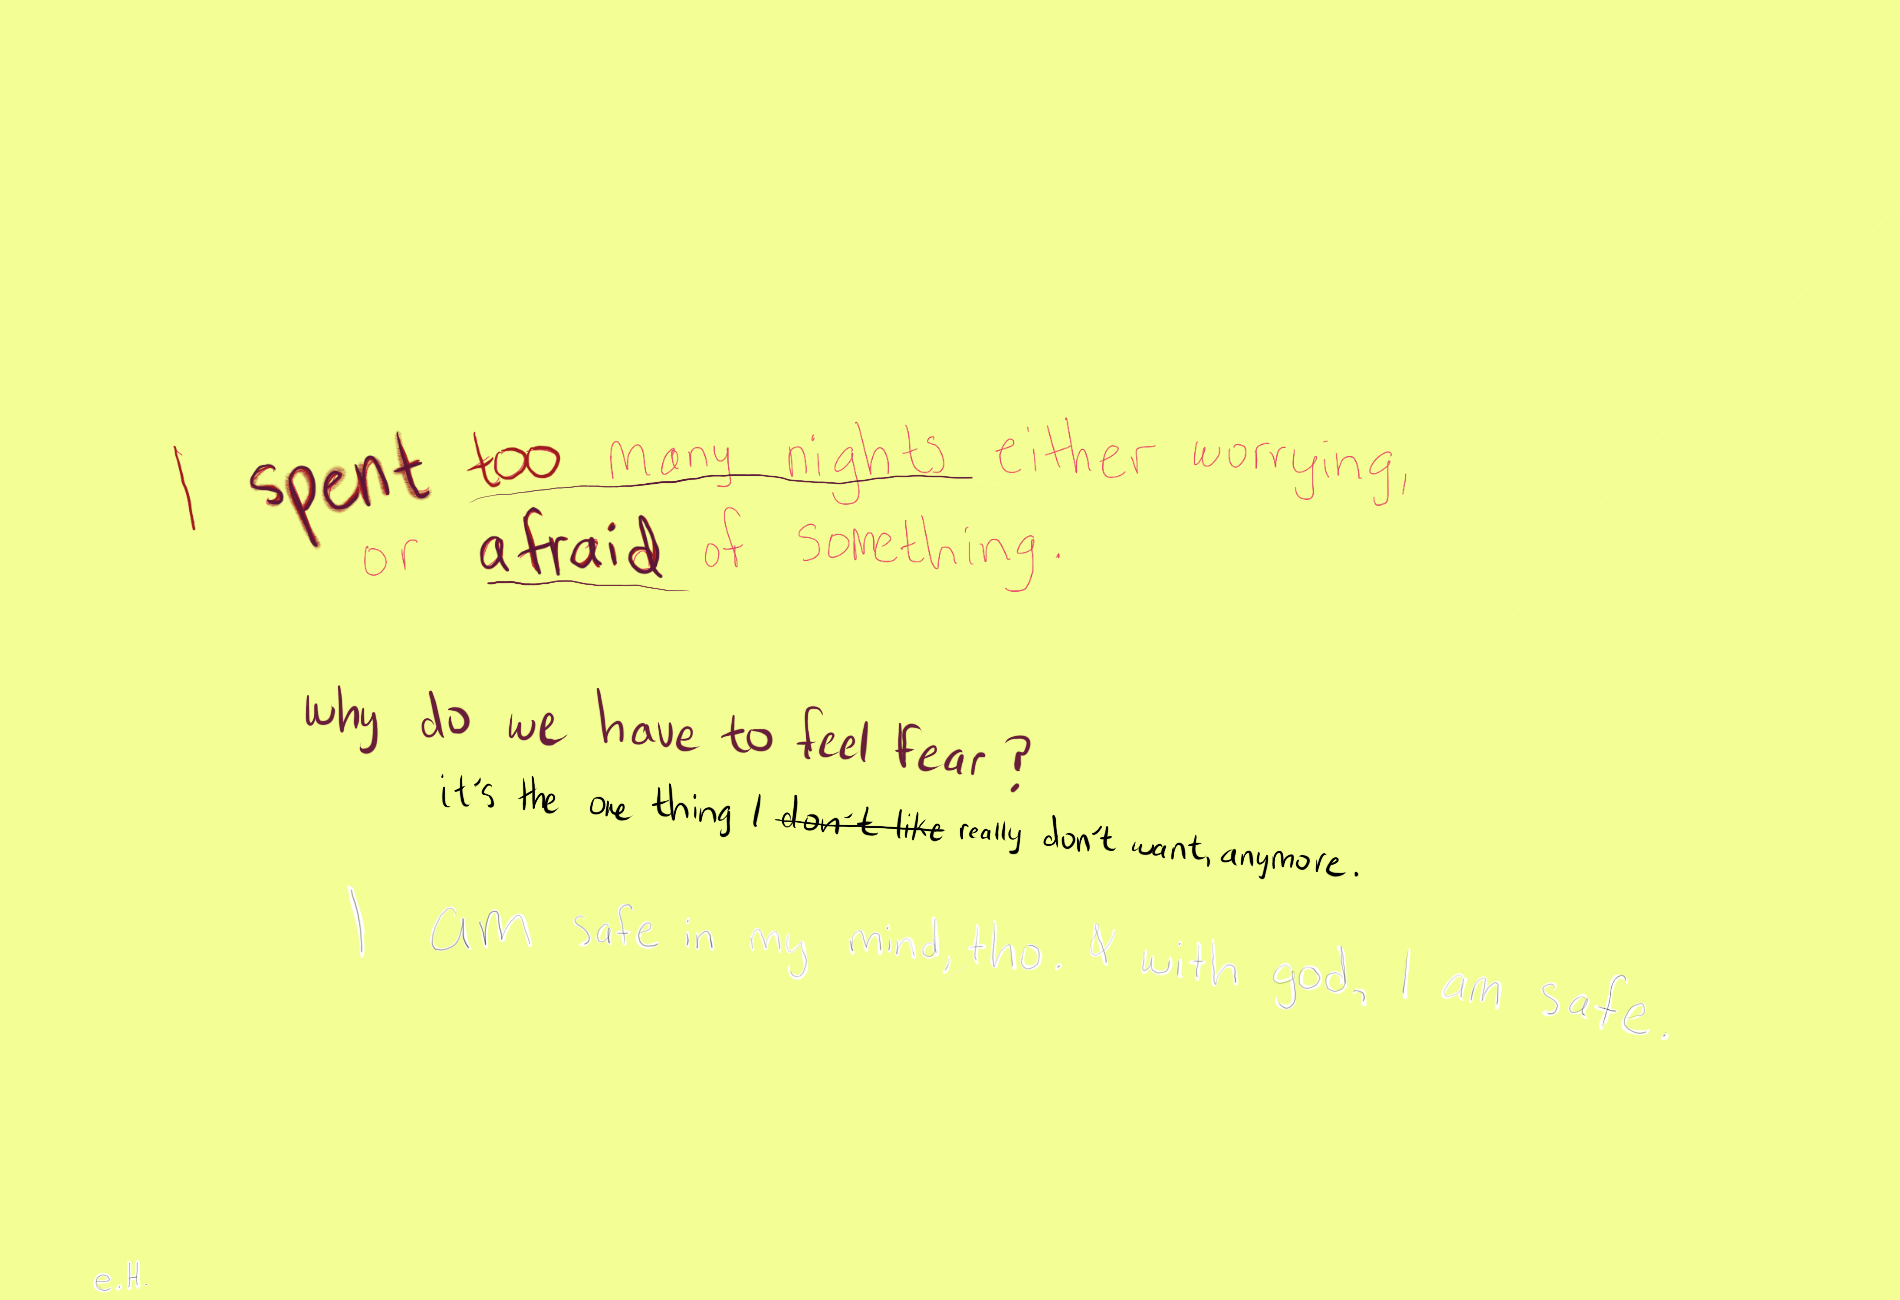 I spent too many nights either worrying,
or afraid of something.
why do we have to feel Fear?
it's the one thing I don't like really don't want, anymore.
I am safe in my mind, tho. & with god, I am safe.
e.H.